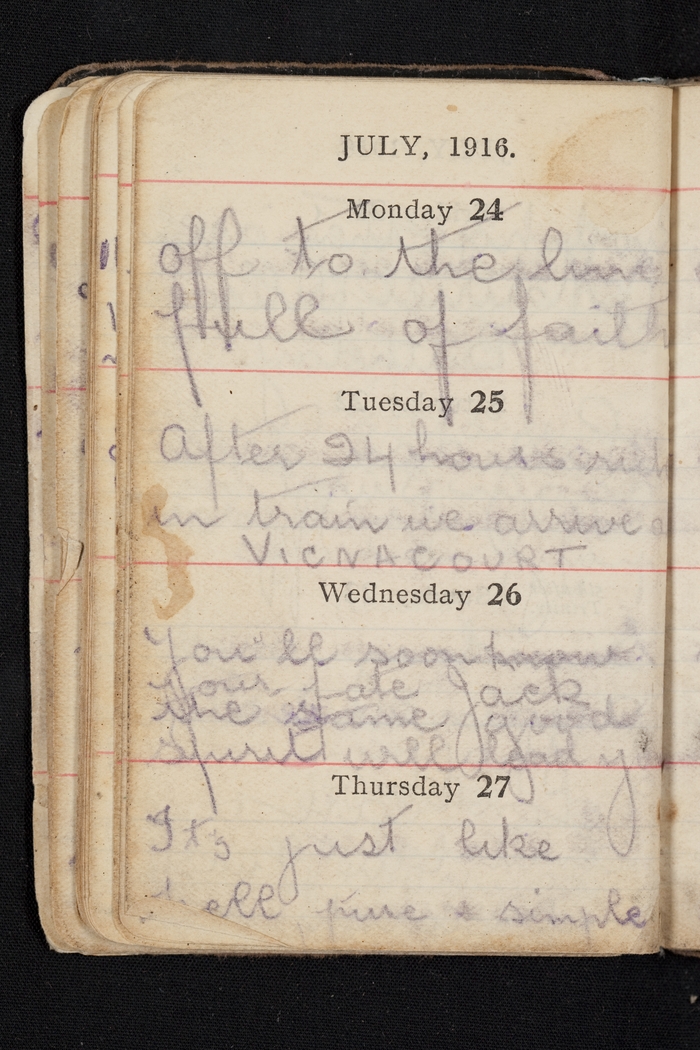 JULY, 1916.
Monday 24
off to the line
full of faith
Tuesday 25
After 24 hours ride
in train we arrive
VICNACOURT
Wednesday 26
You'll soon know
your fate Jack
the same good
spirit will lead
Thursday 27
Its just like
hell pure & simple